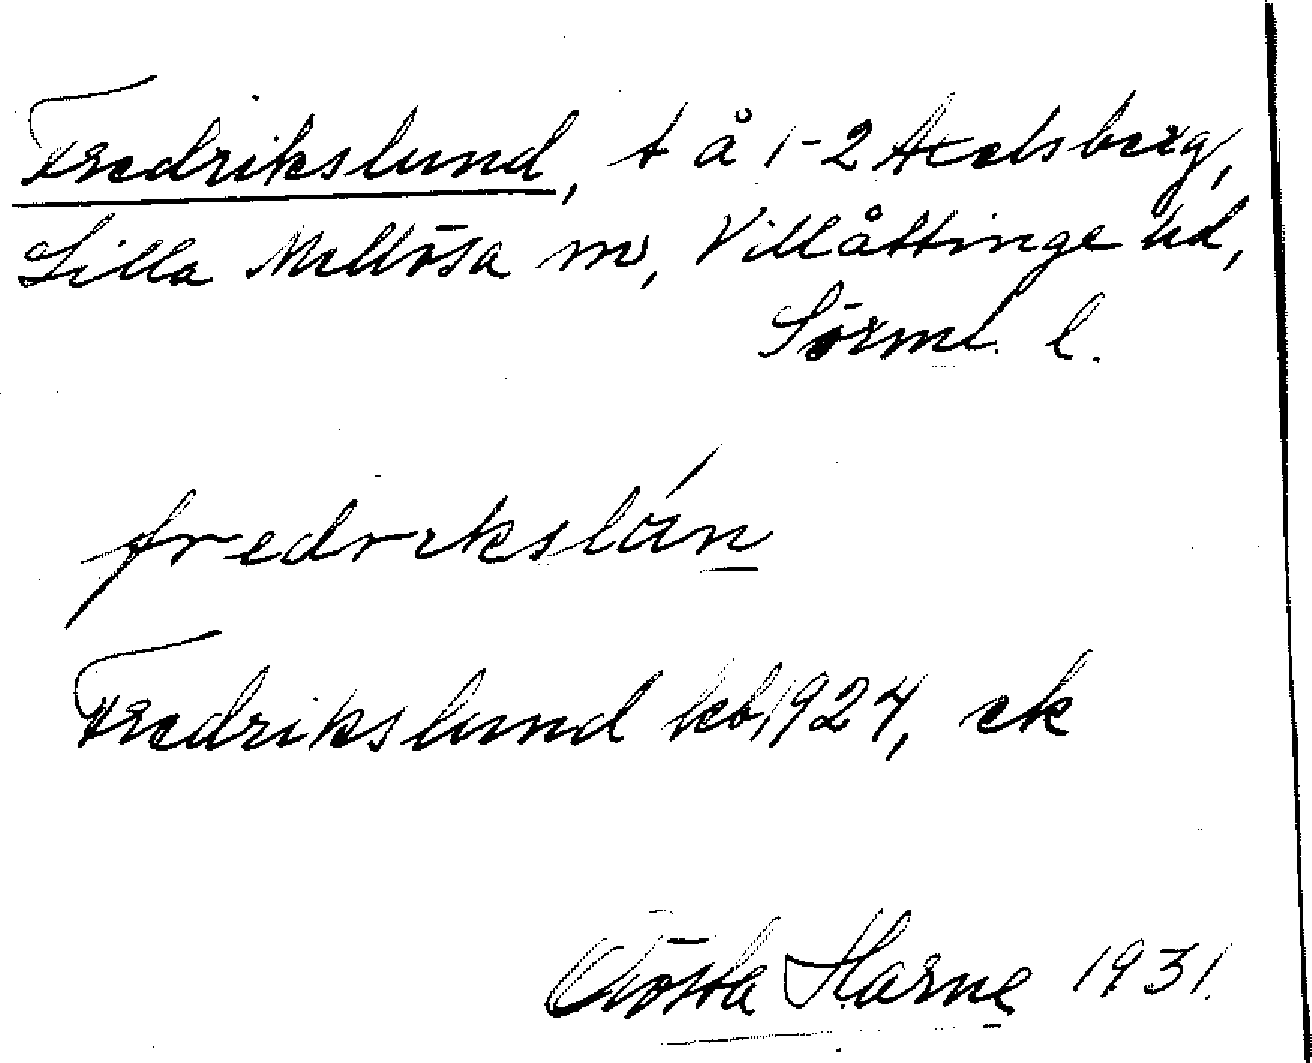 Fredrikslund, t å 1-2 Axelsberg,
Lilla Mellösa sn, Villåttinge hd,
Sörml. l.
fredrikslún
Fredrikslund kb 1924, ek
Gösta Harne 1931.